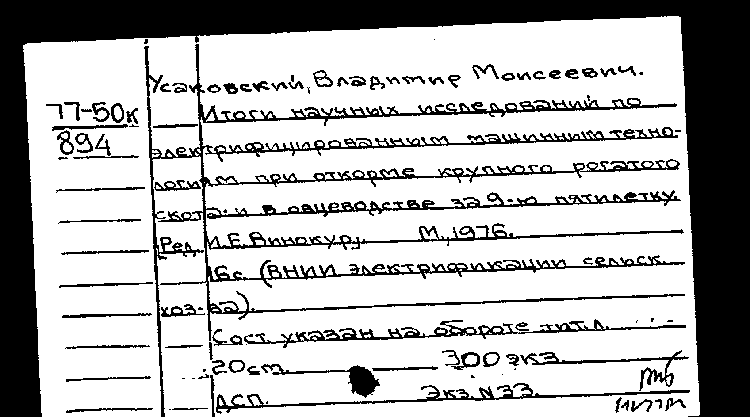 Усаковский, Владимир Моисеевич.
77-50к
894
Итоги научных исследований по
электрифицированным машинным техно-
логиям при откорме крупного рогатого
скота и в овцеводстве за 9-ю пятилетку.
[Ред. И.Е. Винокур]. М., 1976.
16с. (ВНИИ электрификации сельск.
хоз-ва).
Сост. указан на обороте тит.л.
20cm. 300 экз.
ДСП. Экз. N 33.